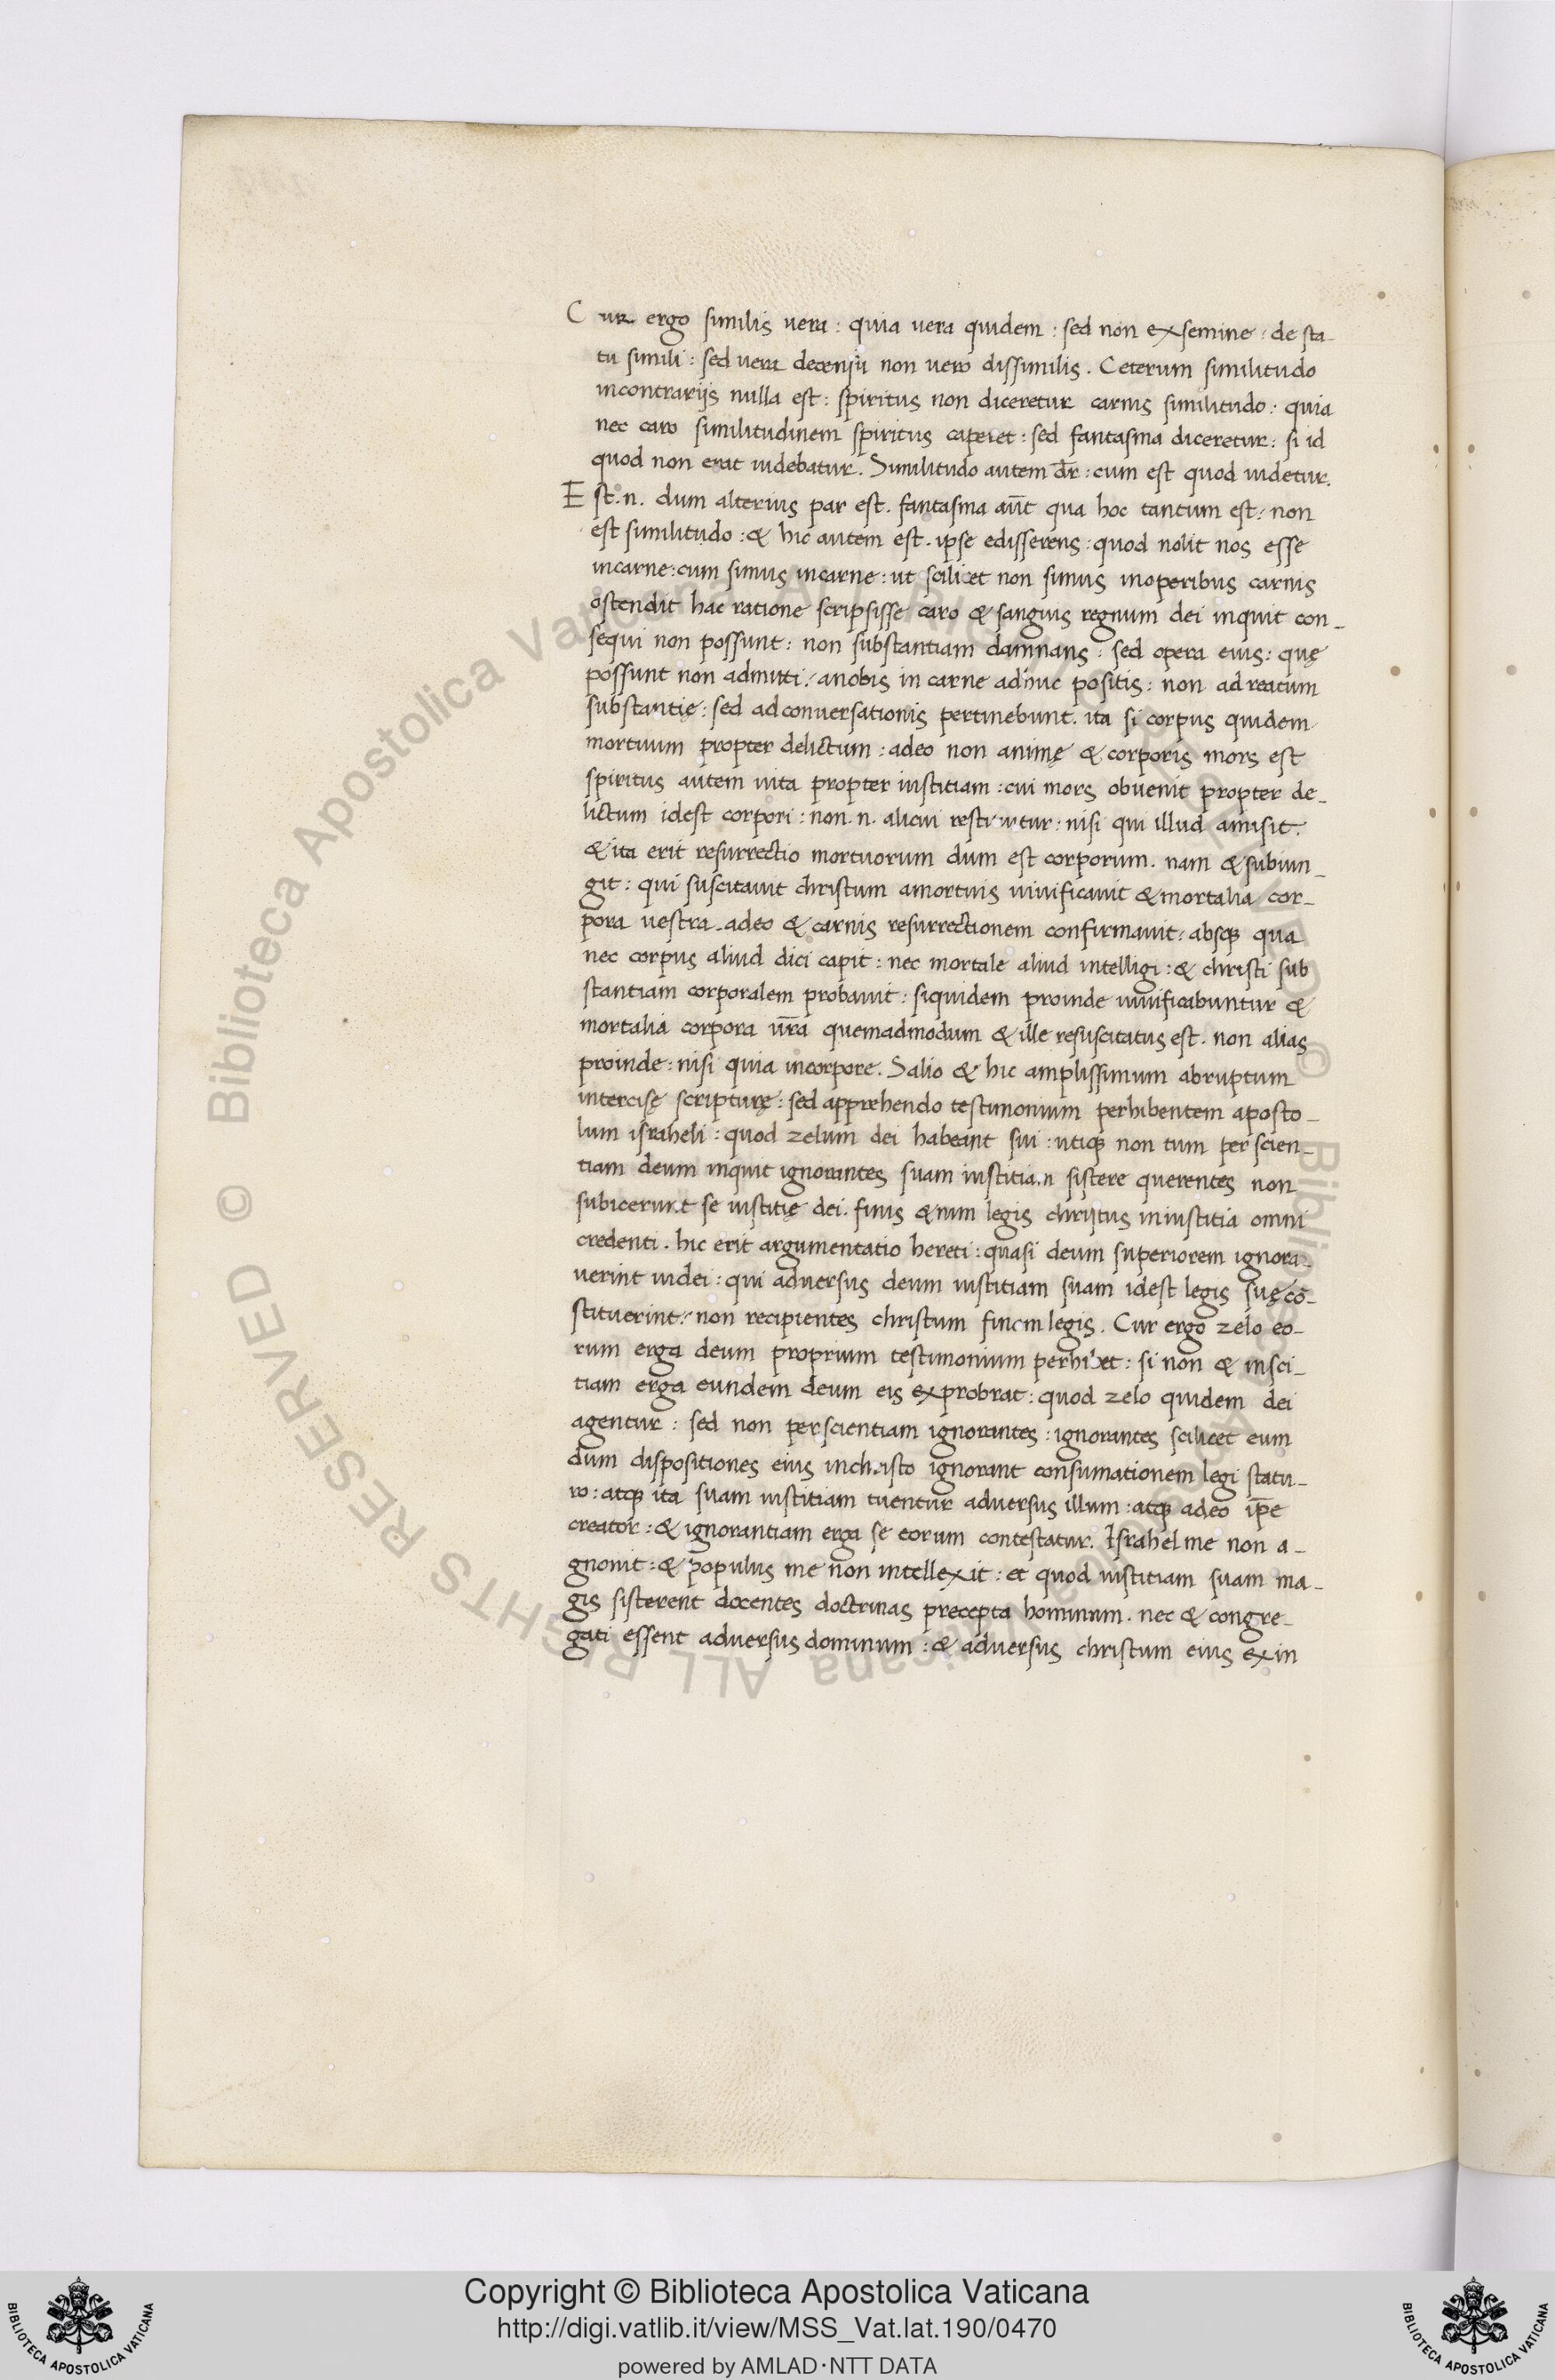 Cur ergo similis uera : quia uera quidem : sed non ex semine : de sta-
tu simili : sed uera decensu non uero dissimilis. Ceterum similitudo
incontrarijs nulla est : spiritus non diceretur carnis similitudo : quia
nec caro similitudinem spiritus caperet : sed fantasma diceretur : si id
quod non erat uidebatur. Similitudo autem dr̄ : cum est quod uidetur.
Est .n. dum alterius par est. fantasma aūt qua hoc tantum est : non
est similitudo : & hic autem est . ipse edisserens : quod nolit nos esse
incarne : cum simus incarne : ut scilicet non simus inoperibus carnis
ostendit hac ratione scripsisse caro & sanguis regnum dei inquit con-
sequi non possunt : non substantiam damnans : sed opera eius : quę
possunt non admitti : anobis in carne adhuc positis : non ad reatum
substantię : sed ad conuersationis pertinebunt. ita si corpus quidem
mortuum propter delictum : adeo non animę & corporis mors est
spiritus autem uita propter iustitiam : cui mors obuenit propter de-
lictum idest corpori : non .n. alicui restituitur : nisi qui illud amisit.
& ita erit resurrectio mortuorum dum est corporum. nam & subiun-
git : qui suscitauit christum amortuis uiuificauit & mortalia cor-
pora uestra. adeo & carnis resurrectionem confirmauit : absq qua
nec corpus aliud dici capit : nec mortale aliud intelligi : & christi sub
stantiam corporalem probauit : siquidem proinde uiuificabuntur &
mortalia corpora ur̄a quemadmodum & ille resuscitatus est. non alias
proinde : nisi quia incorpore. Salio & hic amplissimum abruptum
intercisę scripturę : sed apprehendo testimonium perhibentem aposto-
lum israheli : quod zelum dei habeant sui : utiq non tum per scien-
tiam deum inquit ignorantes suam iustitiam sistere querentes non
subicerunt se iustitię dei. finis enim legis christus iniustitia omni
credenti. hic erit argumentatio hereti : quasi deum superiorem ignora-
uerint iudei : qui aduersus deum iustitiam suam idest legis suę cō-
stituerint : non recipientes christum finem legis. Cur ergo zelo eo-
rum erga deum proprium testimonium perhibet : si non & insci-
tiam erga eundem deum eis exprobrat : quod zelo quidem dei
agentur : sed non per scientiam ignorantes : ignorantes scilicet eum
dum dispositiones eius inchristo ignorant consumationem legi statu-
ro : atq ita suam iustitiam tuentur aduersus illum : atq adeo ip̄e
creator : & ignorantiam erga se eorum contestatur. Israhel me non a-
gnouit : & populus me non intellexit : et quod iustitiam suam ma-
gis sisterent docentes doctrinas precepta hominum. nec & congre-
gati essent aduersus dominum : & aduersus christum eius ex in
© Biblioteca Apostolica Vaticana ALL RIGHTS RESERVED © Biblioteca Apostolica Vaticana ALL RIGHTS RESERVED
Copyright © Biblioteca Apostolica Vaticana
http://digi.vatlib.it/view/MSS_Vat.lat.190/0470
powered by AMLAD·NTT DATA
BIBLIOTECA APOSTOLICA VATICANA
BIBLIOTECA APOSTOLICA VATICANA